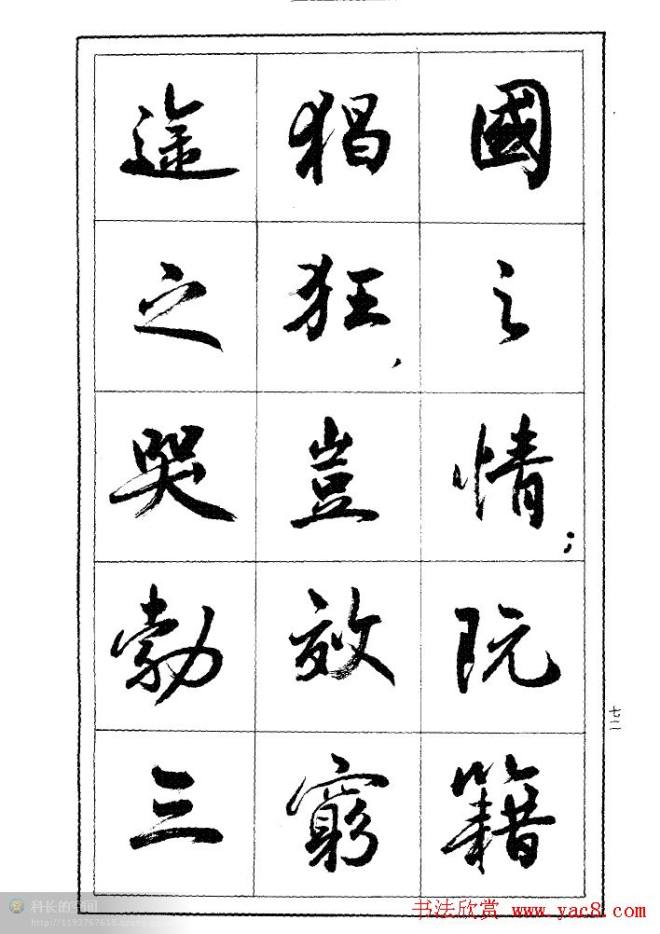 國之情；阮籍
猖狂，豈效窮
途之哭勃三
七二
科长的空间
书法欣赏 www.yac8.com